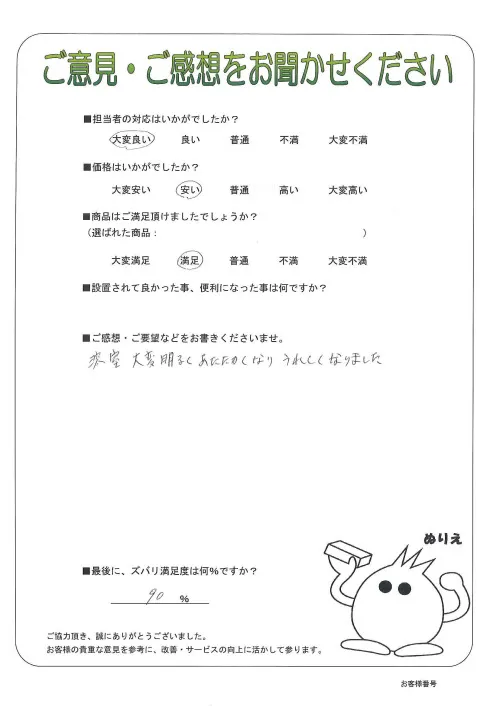 ご意見・ご感想をお聞かせください
■担当者の対応はいかがでしたか？
大変良い 良い 普通 不満 大変不満
■価格はいかがでしたか？
大変安い 安い 普通 高い 大変高い
■商品はご満足頂けましたでしょうか？
（選ばれた商品： ）
大変満足 満足 普通 不満 大変不満
■設置されて良かった事、便利になった事は何ですか？
■ご感想・ご要望などをお書きくださいませ。
大変明るくあたたかくなり うれしくなりました
ぬりえ
■最後に、ズバリ満足度は何％ですか？
90 ％
ご協力頂き、誠にありがとうございました。
お客様の貴重な意見を参考に、改善・サービスの向上に活かして参ります。
お客様番号